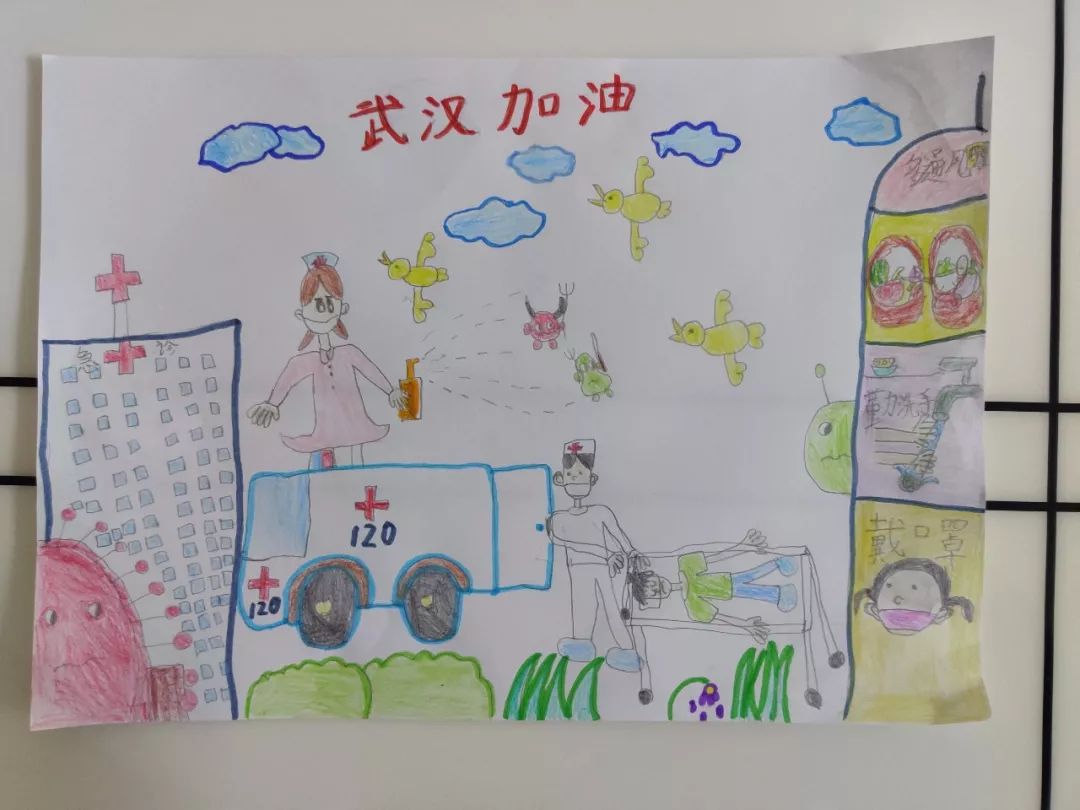 武汉加油
急诊
120
120
多通风
勤洗手
戴口罩